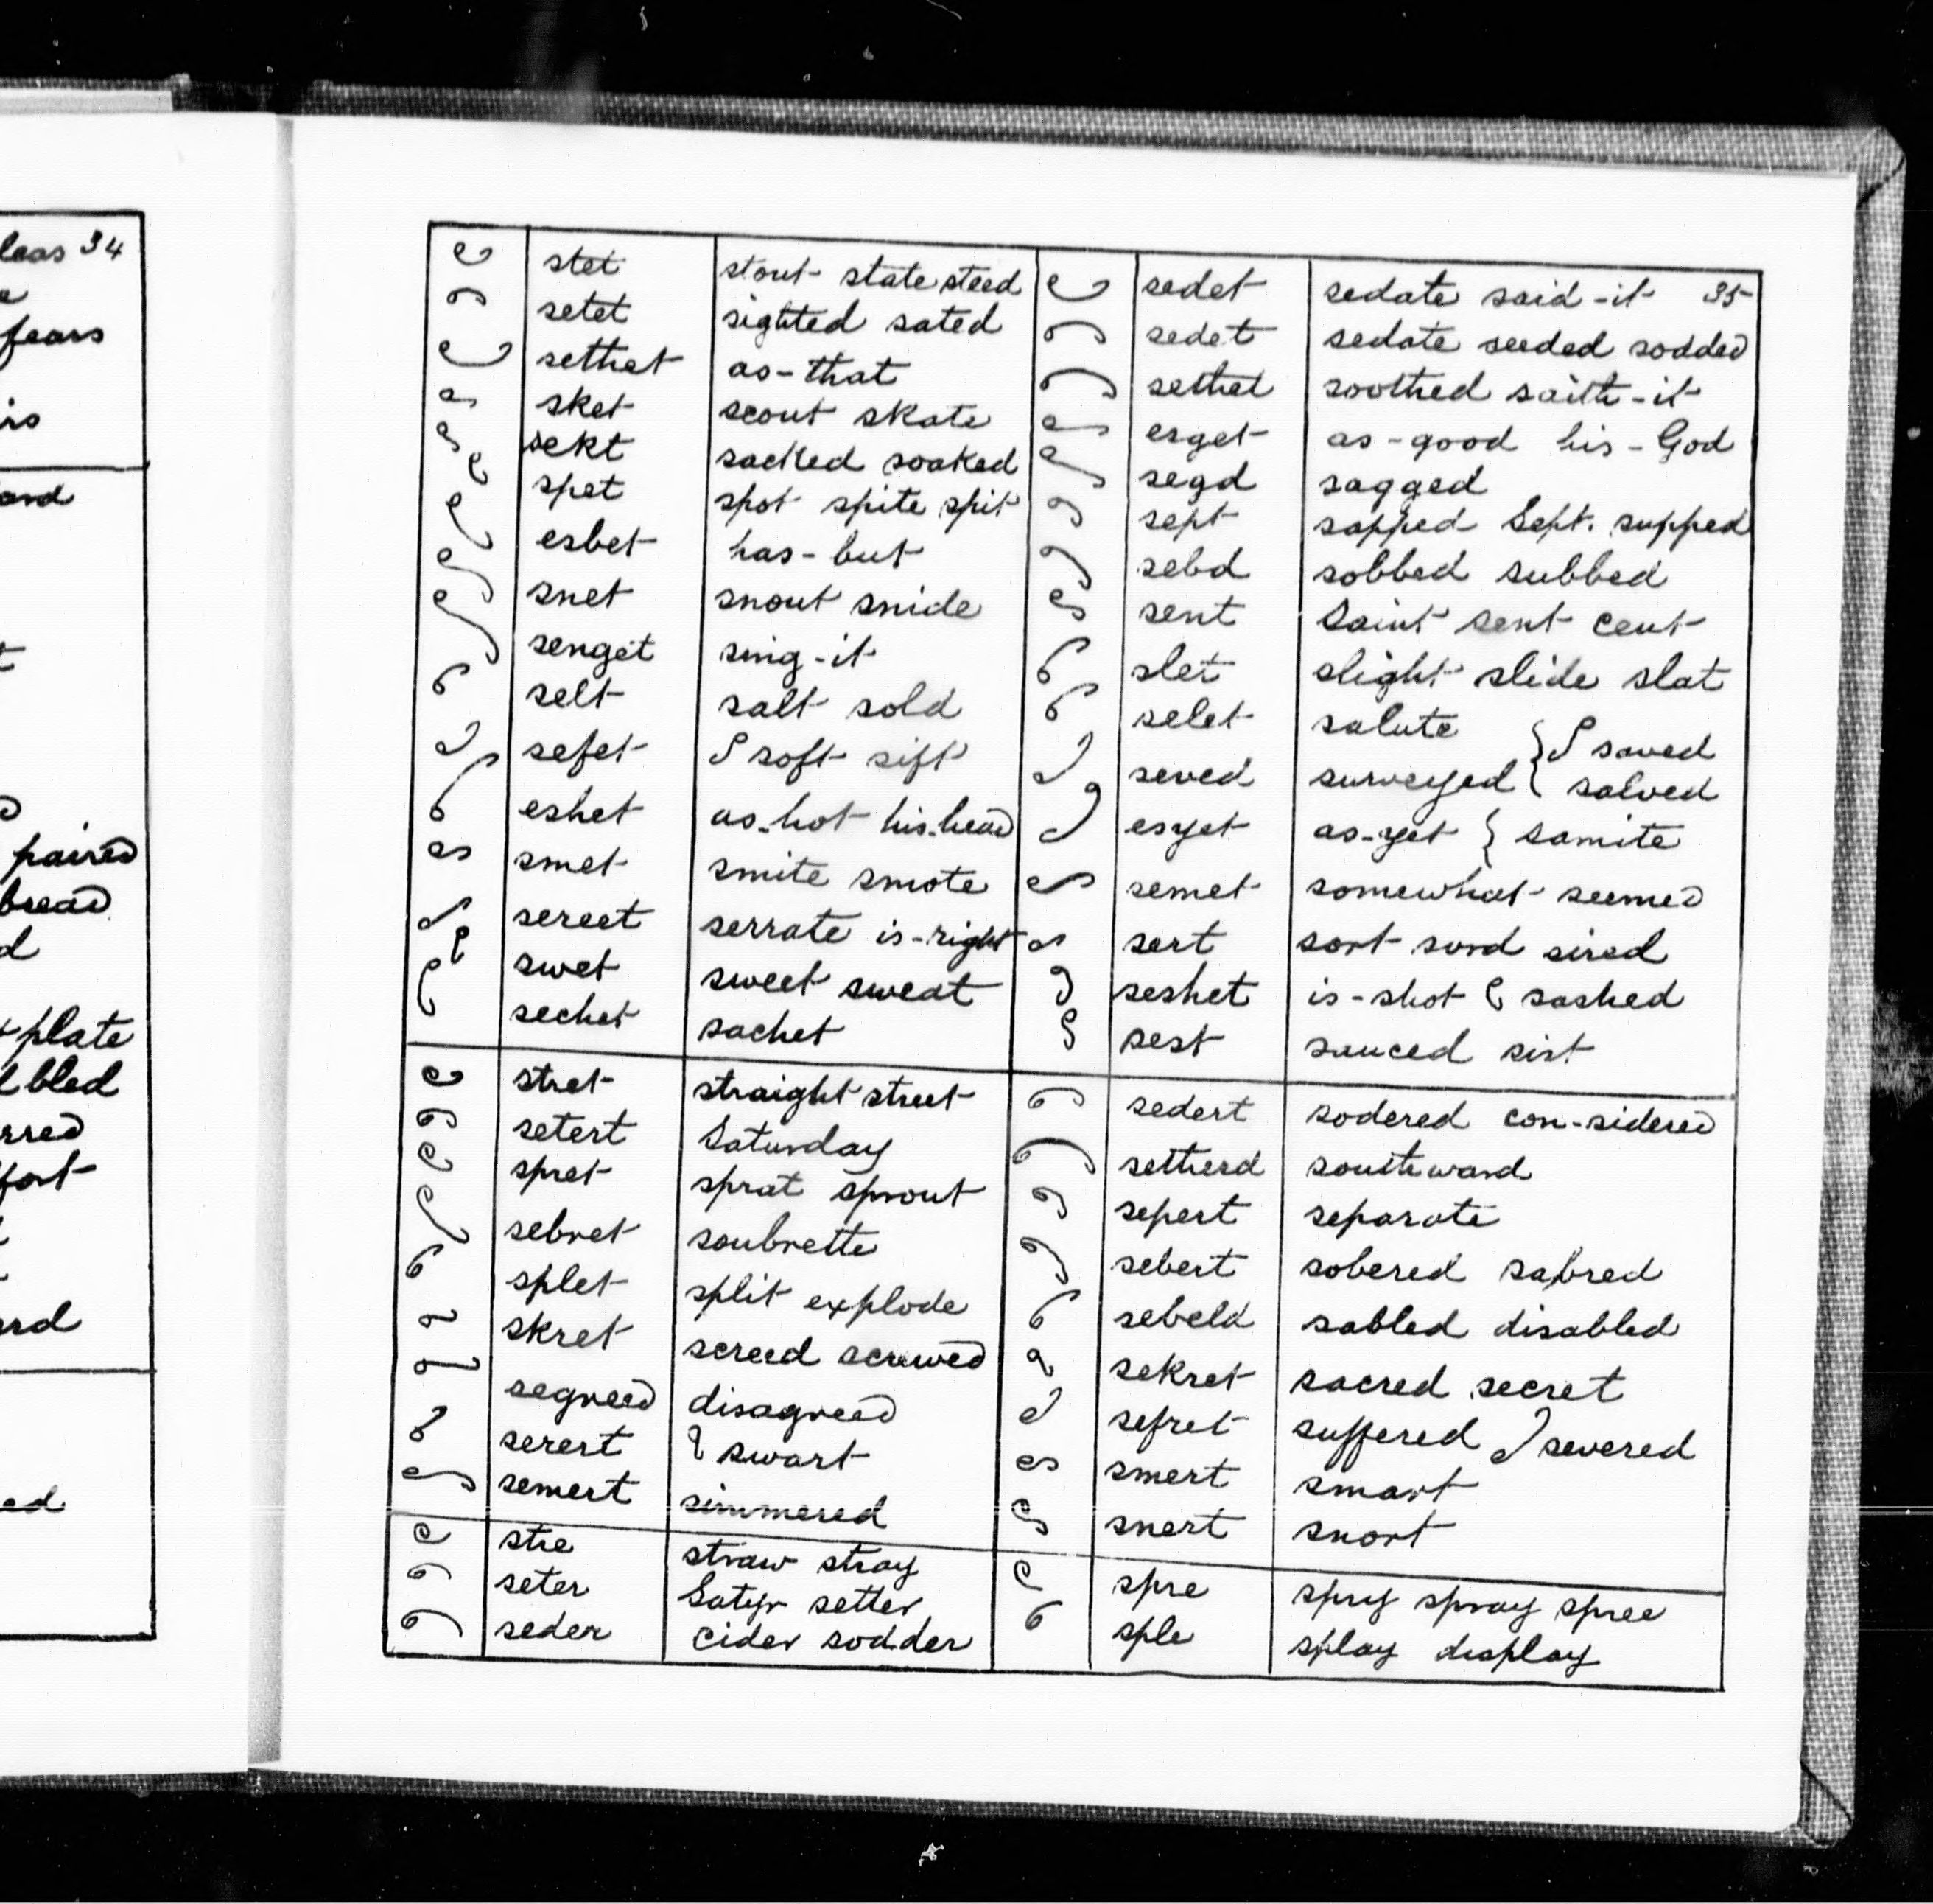 leas 34
fears
is
paired
bread
d
plate
bled
rred
fort
ed
stet stout state steed
setet sighted sated
sethet as-that
sket scout skate
sekt sacked soaked
spet spot spite spit
esbet has-but
snet snout snide
senget sing-it
selt salt sold
sefet soft sift
eshet as-hot his-head
smet smite smote
sereet serrate is-right
swet sweet sweat
sechet sachet
stret straight street
setert Saturday
spret sprat sprout
sebret soubrette
splet split explode
skret screed screwed
segreed disagreed
serert swart
semert simmered
stre straw stray
seter Satyr setter
seder cider sodder
sedet sedate said-it 35
sedet sedate seeded sodded
sethet soothed saith-it
esget as-good his-God
segd sagged
sept sapped Sept. supped
sebd sobbed subbed
sent Saint sent cent
slet slight slide slat
selet salute } saved
seved surveyed { salved
esyet as-yet { samite
semet somewhat seemed
sert sort surd sired
seshet is-shot sashed
sest sauced sist
sedert sodered con-sidered
setherd southward
sepert separate
sebert sobered sabred
sebeld sabled disabled
sekret sacred secret
sefret suffered severed
smert smart
snert snort
spre spry spray spree
sple splay display